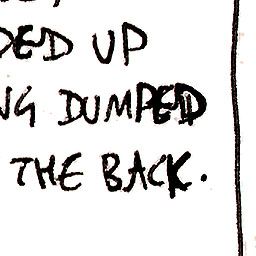 DED UP
NG DUMPED
THE BACK.